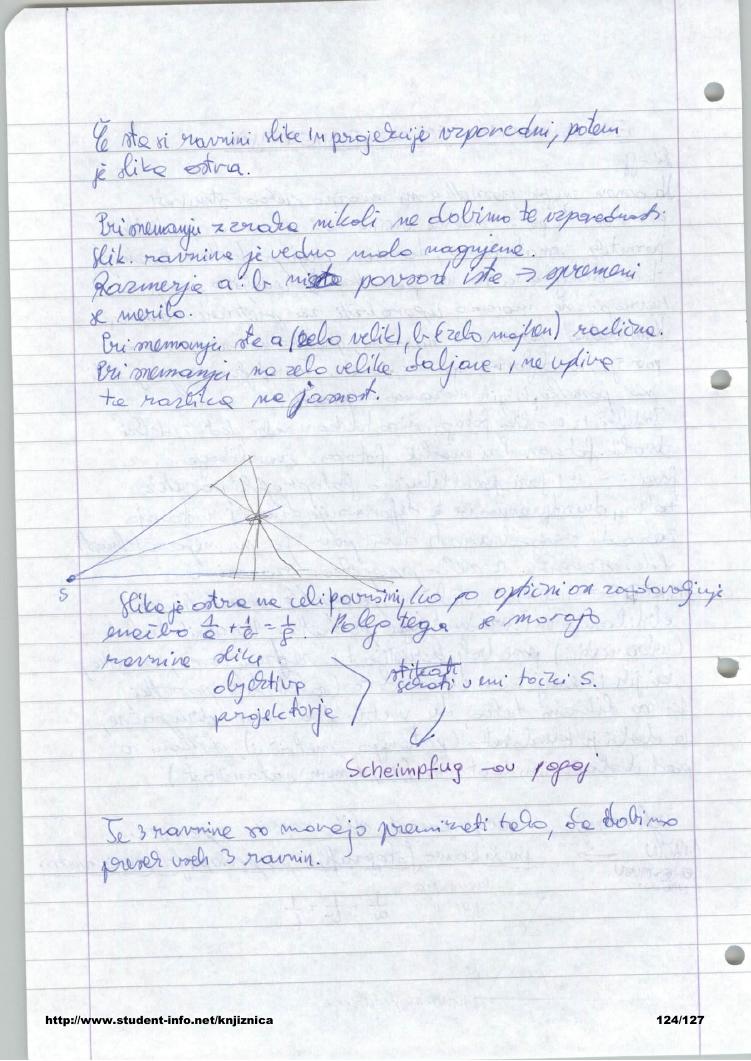 Če sta si ravnini slike in projekcije vzporedni, potem
je slika ostra.
Pri snemanju z zraka nikoli ne dobimo te vzporednosti.
Slik. ravnina je vedno malo nagnjena.
Razmerje a:b povsod iste → spremeni
se merilo.
Pri snemanju sta a (zelo velik), b (zelo majhen) različna.
Pri snemanju na zelo velike daljave, ne vpliva
ta razlika na jasnost.
S
Slika je ostra na celi površini, ko po optični osi zadovoljuje
enačbo 1/a + 1/b = 1/f. Poleg tega se morajo
ravnine slike
objektiva
projekcije
stikati
sekati v eni točki S.
Scheimpfug -ov pogoj
Te 3 ravnine so morajo premikati tako, da dobimo
presek vseh 3 ravnin.
http://www.student-info.net/knjiznica
124/127